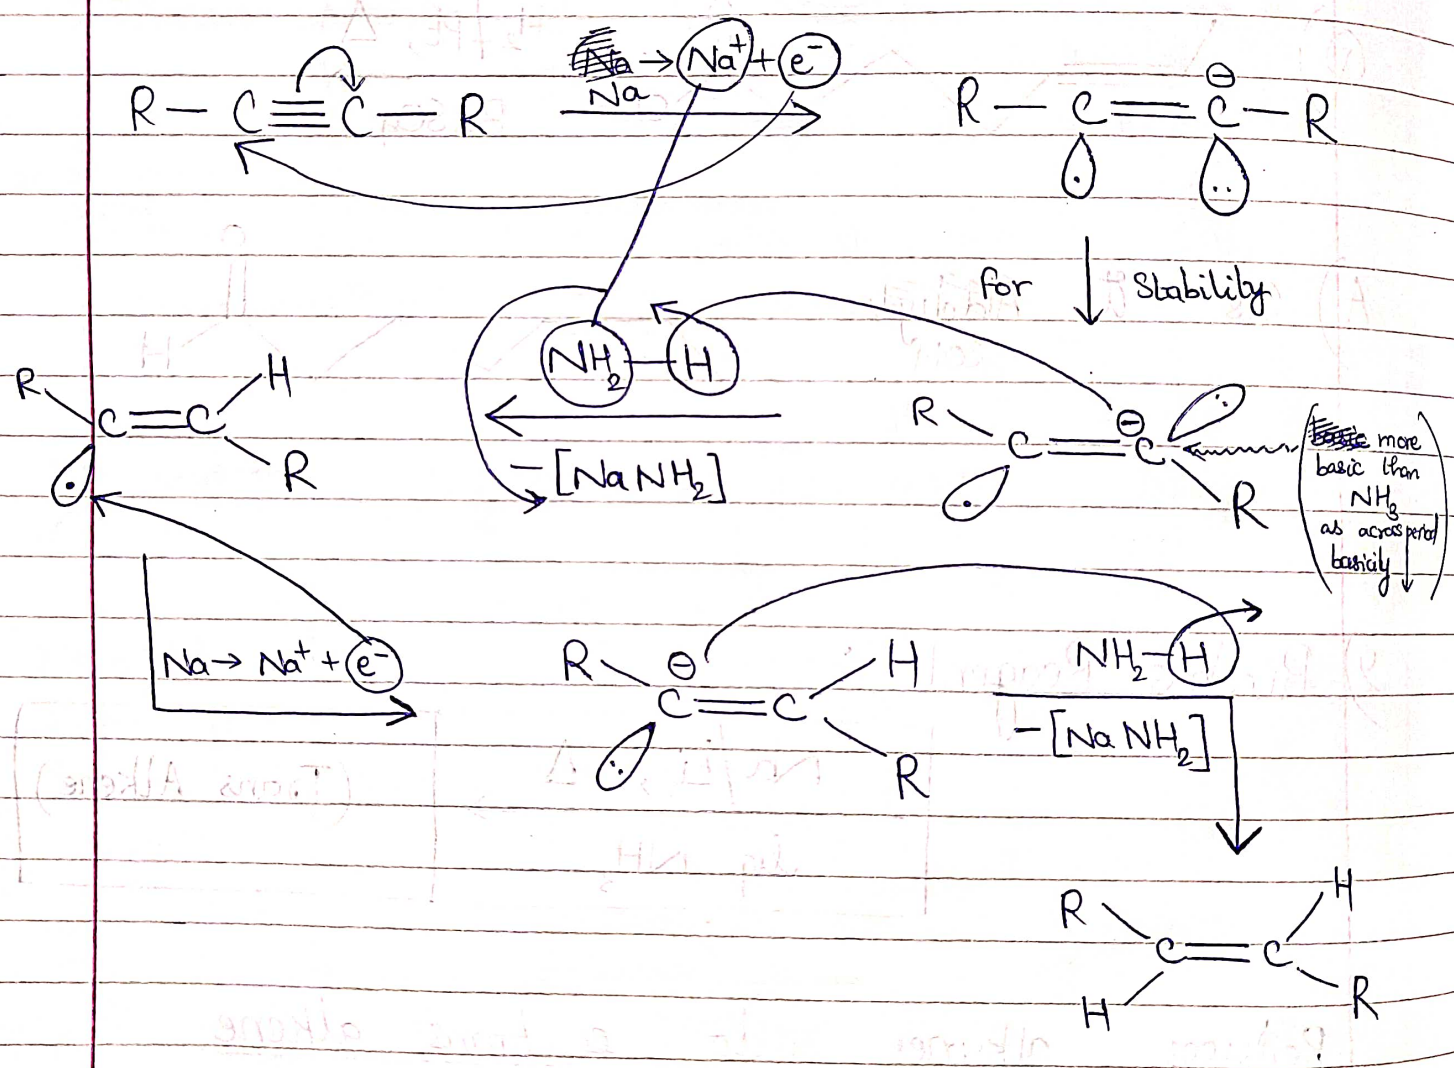 Na → Na⁺ + e⁻
Na
R — C ≡ C — R
R — C = C⊖ — R
for Stability
NH₂ — H
− [NaNH₂]
R
C = C
H
R
R
C = C⊖
R
more
basic than
NH₃
as across period
basicity ↓
Na → Na⁺ + e⁻
R
⊖
C = C
H
R
NH₂ — H
− [NaNH₂]
R
H
C = C
H
R